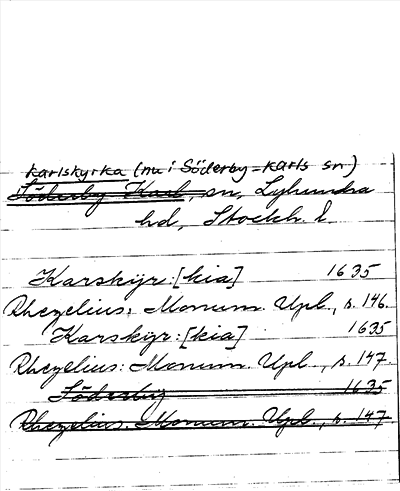 Karlskyrka (nu i Söderby-Karls sn)
Söderby Karl, sn, Lyhundra
hd, Stockh. l.
Karskÿr:[kia] 1635
Rhezelius: Monum. Upl., s. 146.
Karskÿr:[kia] 1635
Rhezelius: Monum. Upl., s. 147.
Söderby 1635
Rhezelius. Monum. Upl., s. 147.